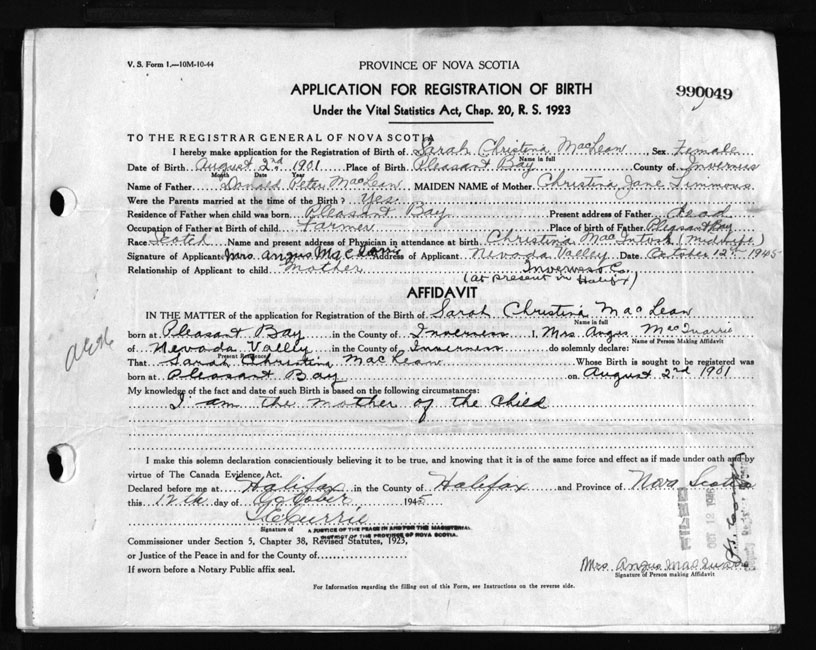 V. S. Form 1.—10M-10-44
PROVINCE OF NOVA SCOTIA
APPLICATION FOR REGISTRATION OF BIRTH
990049
Under the Vital Statistics Act, Chap. 20, R. S. 1923
TO THE REGISTRAR GENERAL OF NOVA SCOTIA
I hereby make application for the Registration of Birth of Sarah Christina MacLean, Sex Female
Name in full
Date of Birth August 2nd 1901 Place of Birth Pleasant Bay County of Inverness
Month Date Year
Name of Father Donald Peter MacLean MAIDEN NAME of Mother Christina Jane Timmons
Were the Parents married at the time of the Birth? Yes.
Residence of Father when child was born Pleasant Bay Present address of Father dead
Occupation of Father at Birth of child Farmer Place of birth of Father Pleasant Bay
Race Scotch Name and present address of Physician in attendance at birth Christina MacIntosh (Midwife)
Signature of Applicant Mrs. Angus Address of Applicant Nevada Valley Date October 12th 1945
Relationship of Applicant to child Mother Inverness Co.
(at present in Halifax)
AFFIDAVIT
IN THE MATTER of the application for Registration of the Birth of Sarah Christina MacLean
Name in full
born at Pleasant Bay in the County of Inverness I, Mrs Angus MacQuarrie
Name of Person Making Affidavit
of Nevada Vallly in the County of Inverness do solemnly declare:
Present Residence
That Sarah Christina MacLean Whose Birth is sought to be registered was
born at Pleasant Bay on August 2nd 1901
My knowledge of the fact and date of such Birth is based on the following circumstances:
I am the mother of the child
I make this solemn declaration conscientiously believing it to be true, and knowing that it is of the same force and effect as if made under oath and by
virtue of The Canada Evidence Act.
Declared before me at Halifax in the County of Halifax and Province of Nova Scotia
this 12th day of October 1945
Currie
Signature of A JUSTICE OF THE PEACE IN AND FOR THE MAGISTERIAL
DISTRICT OF THE PROVINCE OF NOVA SCOTIA.
Commissioner under Section 5, Chapter 38, Revised Statutes, 1923,
or Justice of the Peace in and for the County of
If sworn before a Notary Public affix seal.
FILED
Mrs. Angus MacQuarrie
Signature of Person making Affidavit
For Information regarding the filling out of this Form, see Instructions on the reverse side.